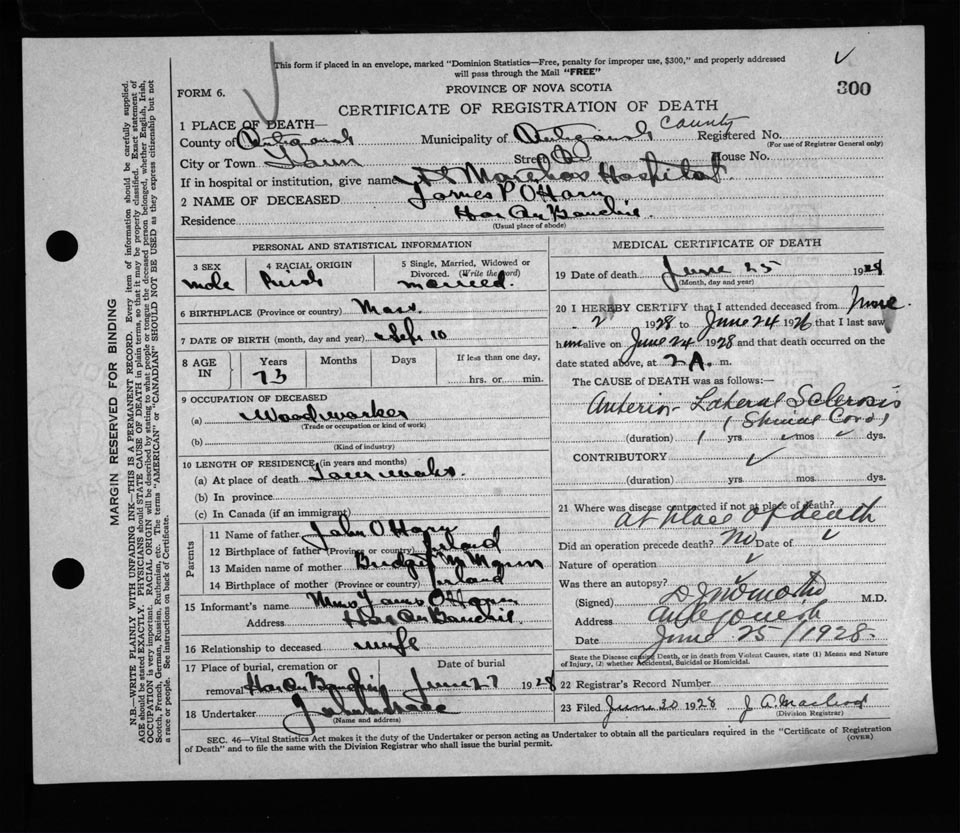 This form if placed in an envelope, marked "Dominion Statistics—Free, penalty for improper use, $300," and properly addressed
will pass through the Mail "FREE"
FORM 6.
PROVINCE OF NOVA SCOTIA
300
CERTIFICATE OF REGISTRATION OF DEATH
1 PLACE OF DEATH—
County of Antigonish Municipality of Antigonish County Registered No.
(For use of Registrar General only)
City or Town Town Street House No.
If in hospital or institution, give name St Marthas Hospital
2 NAME OF DECEASED James P O'Hara
Residence Har Au Bouchie
(Usual place of abode)
PERSONAL AND STATISTICAL INFORMATION
3 SEX 4 RACIAL ORIGIN 5 Single, Married, Widowed or
Divorced. (Write the word)
male Irish married.
6 BIRTHPLACE (Province or country) Mass.
7 DATE OF BIRTH (month, day and year) Sept 10
8 AGE IN Years Months Days If less than one day,
73 hrs. or min.
9 OCCUPATION OF DECEASED
(a) Woodworker
(Trade or occupation or kind of work)
(b)
(Kind of industry)
10 LENGTH OF RESIDENCE (in years and months)
(a) At place of death
(b) In province
(c) In Canada (if an immigrant)
Parents
11 Name of father John O'Hara
12 Birthplace of father (Province or country) Ireland
13 Maiden name of mother Bridget
14 Birthplace of mother (Province or country) Ireland
15 Informant's name Mrs James O'Hara
Address Har Au Bouchie
16 Relationship to deceased wife
17 Place of burial, cremation or Date of burial
removal Har Au Bouchie June 27 1928
18 Undertaker
(Name and address)
MEDICAL CERTIFICATE OF DEATH
19 Date of death June 25 1928
(Month, day and year)
20 I HEREBY CERTIFY that I attended deceased from
2 1928 to June 24 1928 that I last saw
him alive on June 24 1928 and that death occurred on the
date stated above, at 2 A. m.
The CAUSE OF DEATH was as follows:—
Anterior Lateral Sclerosis
(Spinal Cord)
(duration) 1 yrs mos dys.
CONTRIBUTORY
(duration) yrs mos dys.
21 Where was disease contracted if not at place of death?
At place of death
Did an operation precede death? No Date of
Nature of operation
Was there an autopsy?
(Signed) M.D.
Address Antigonish
Date June 25/1928.
State the Disease causing Death, or in death from Violent Causes, state (1) Means and Nature
of Injury, (2) whether Accidental, Suicidal or Homicidal.
22 Registrar's Record Number
23 Filed June 30 1928 J. A. Macleod
(Division Registrar)
SEC. 46—Vital Statistics Act makes it the duty of the Undertaker or person acting as Undertaker to obtain all the particulars required in the "Certificate of Registration
of Death" and to file the same with the Division Registrar who shall issue the burial permit.
(OVER)
MARGIN RESERVED FOR BINDING
N.B.—WRITE PLAINLY WITH UNFADING INK—THIS IS A PERMANENT RECORD. Every item of information should be carefully supplied.
AGE should be stated EXACTLY. PHYSICIANS should STATE CAUSE OF DEATH in plain terms, so that it may be properly classified. Exact statement of
OCCUPATION is very important. RACIAL ORIGIN will be described by stating to what people or tongue the deceased person belonged, whether English, Irish,
Scotch, French, German, Russian, Ruthenian, etc. The terms "AMERICAN" or "CANADIAN" SHOULD NOT BE USED as they express citizenship but not
a race or people. See instructions on back of Certificate.